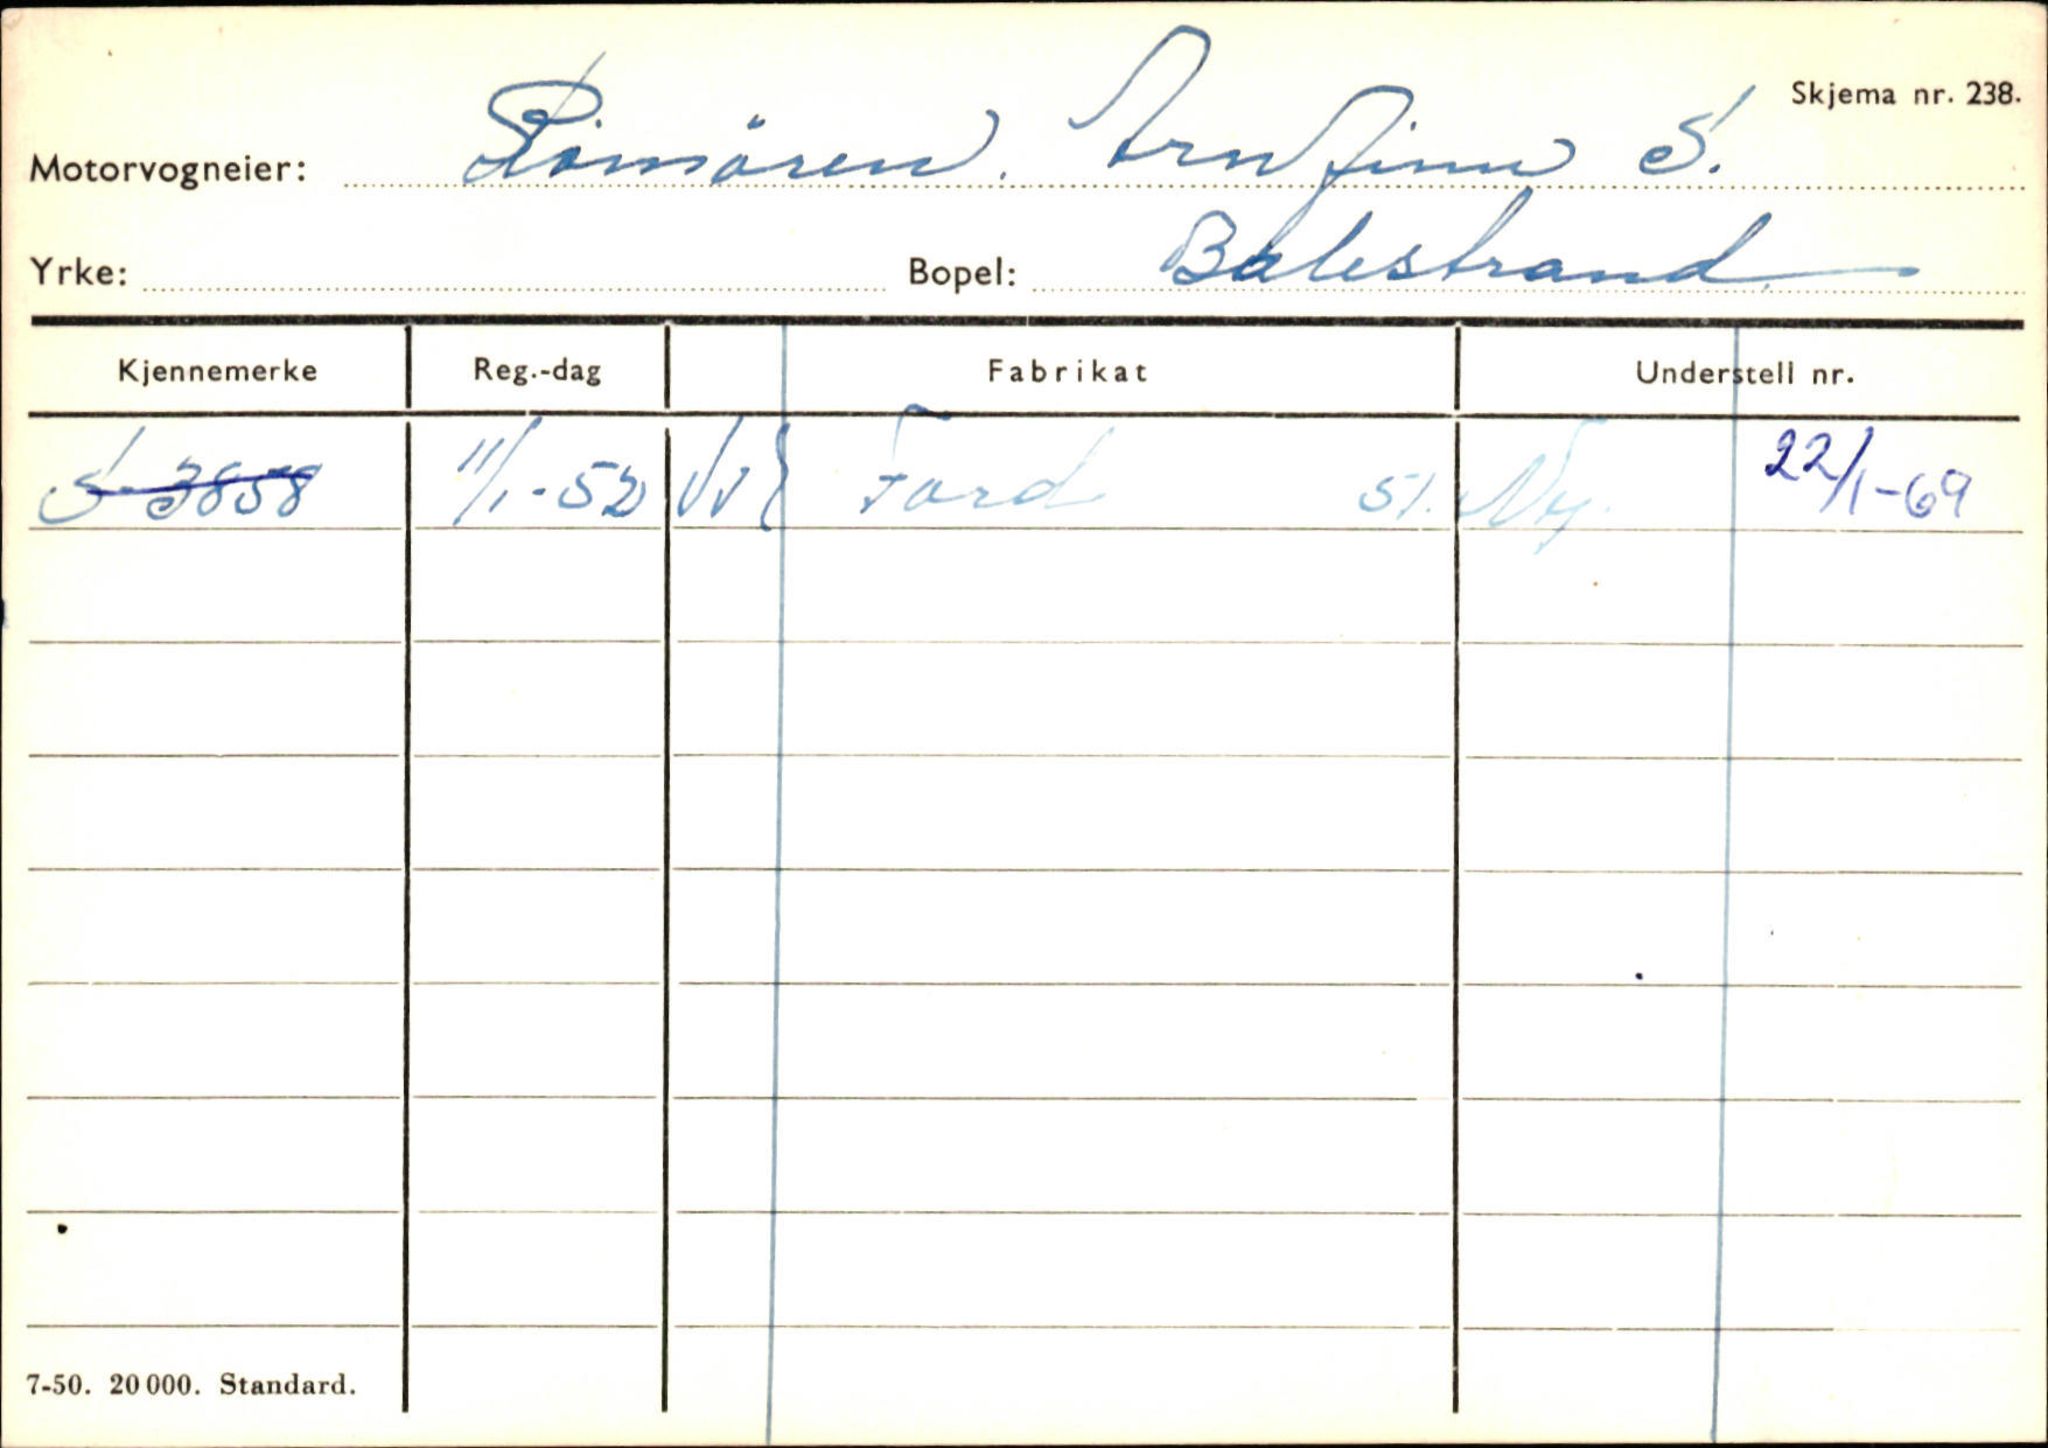 Skjema nr. 238.
Motorvogneier: Römören. Arnfinn S.
Yrke: Bopel: Balestrand
Kjennemerke Reg.-dag Fabrikat Understell nr.
S-3858 11/1-52 Ford 51. Ny. 22/1-69
7-50. 20 000. Standard.